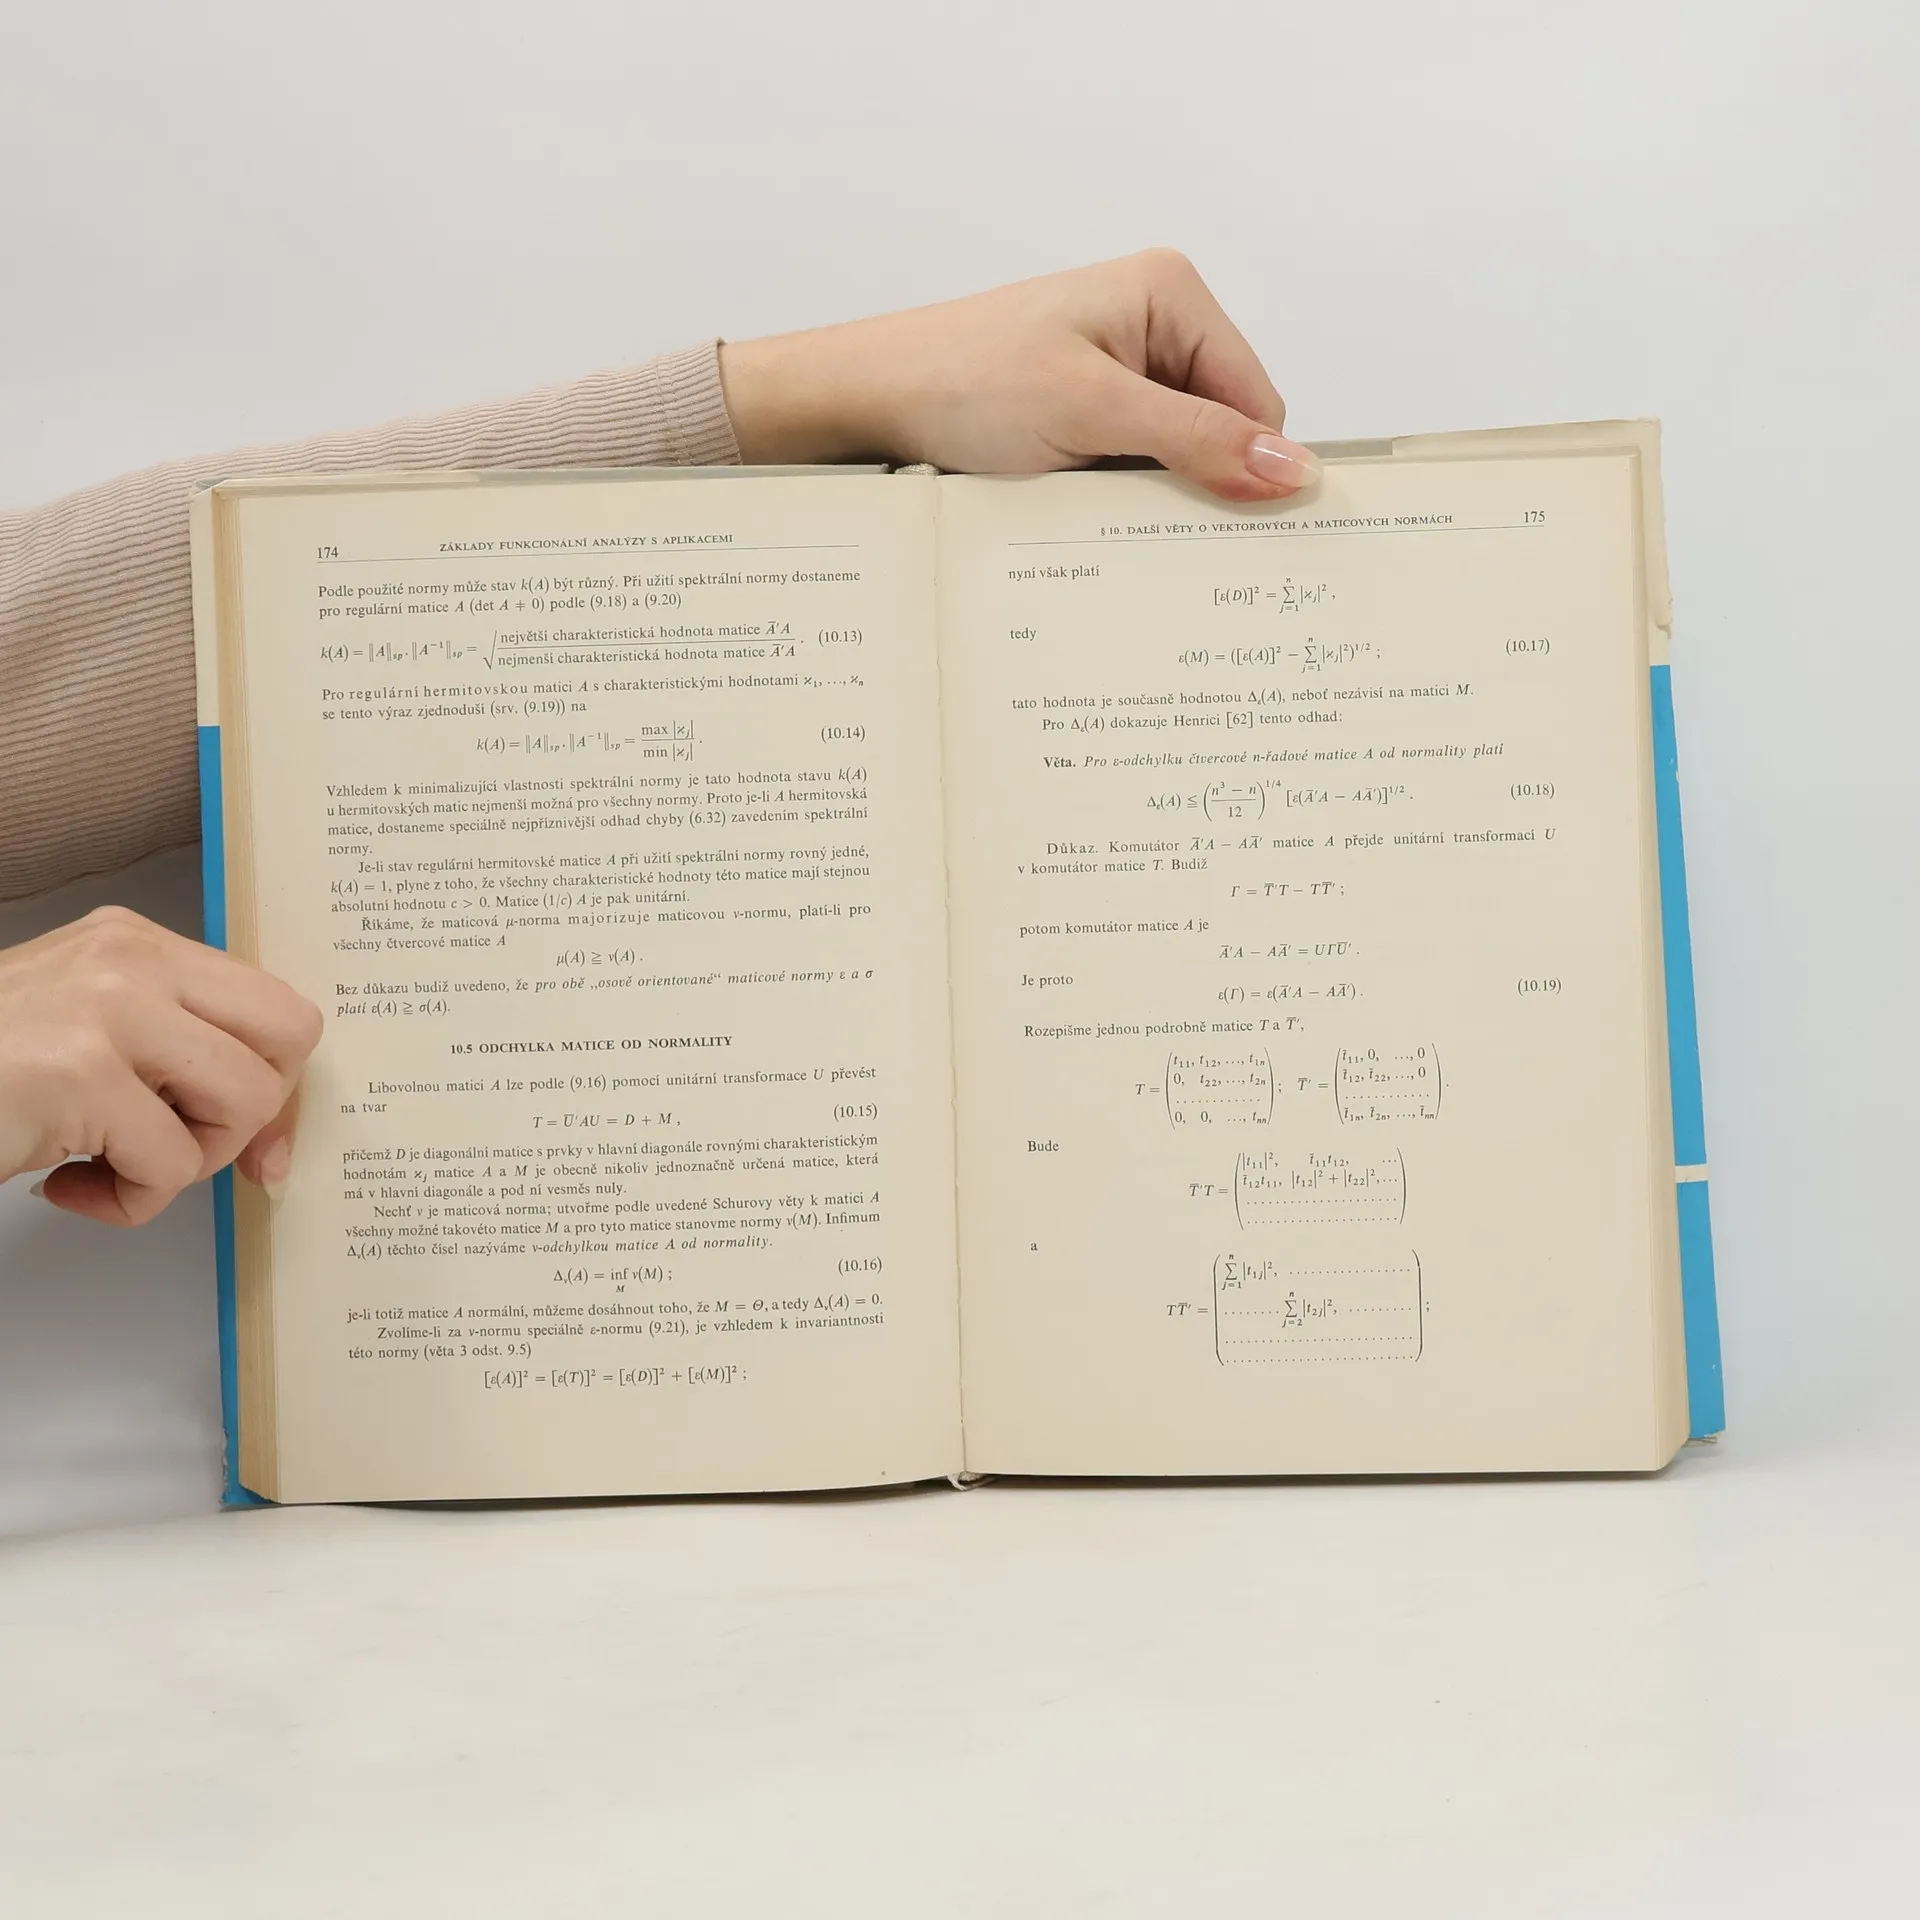 174 ZÁKLADY FUNKCIONÁLNÍ ANALÝZY S APLIKACEMI
Podle použité normy může stav k(A) být různý. Při užití spektrální normy dostaneme
pro regulární matice A (det A ≠ 0) podle (9.18) a (9.20)
k(A) = ‖A‖sp . ‖A⁻¹‖sp = √(největší charakteristická hodnota matice Ā′A / nejmenší charakteristická hodnota matice Ā′A) . (10.13)
Pro regulární hermitovskou matici A s charakteristickými hodnotami ϰ₁, ..., ϰₙ
se tento výraz zjednoduší (srv. (9.19)) na
k(A) = ‖A‖sp . ‖A⁻¹‖sp = max |ϰⱼ| / min |ϰⱼ| . (10.14)
Vzhledem k minimalizující vlastnosti spektrální normy je tato hodnota stavu k(A)
u hermitovských matic nejmenší možná pro všechny normy. Proto je-li A hermitovská
matice, dostaneme speciálně nejpříznivější odhad chyby (6.32) zavedením spektrální
normy.
Je-li stav regulární hermitovské matice A při užití spektrální normy rovný jedné,
k(A) = 1, plyne z toho, že všechny charakteristické hodnoty této matice mají stejnou
absolutní hodnotu c > 0. Matice (1/c) A je pak unitární.
Říkáme, že maticová μ-norma majorizuje maticovou ν-normu, platí-li pro
všechny čtvercové matice A
μ(A) ≧ ν(A) .
Bez důkazu budiž uvedeno, že pro obě „osově orientované“ maticové normy ε a σ
platí ε(A) ≧ σ(A).
10.5 ODCHYLKA MATICE OD NORMALITY
Libovolnou matici A lze podle (9.16) pomocí unitární transformace U převést
na tvar
T = Ū′AU = D + M , (10.15)
přičemž D je diagonální matice s prvky v hlavní diagonále rovnými charakteristickým
hodnotám ϰⱼ matice A a M je obecně nikoliv jednoznačně určená matice, která
má v hlavní diagonále a pod ní vesměs nuly.
Nechť ν je maticová norma; utvořme podle uvedené Schurovy věty k matici A
všechny možné takovéto matice M a pro tyto matice stanovme normy ν(M). Infimum
Δᵥ(A) těchto čísel nazýváme ν-odchylkou matice A od normality.
Δᵥ(A) = inf ν(M) ; (10.16)
M
je-li totiž matice A normální, můžeme dosáhnout toho, že M = Θ, a tedy Δᵥ(A) = 0.
Zvolíme-li za ν-normu speciálně ε-normu (9.21), je vzhledem k invariantnosti
této normy (věta 3 odst. 9.5)
[ε(A)]² = [ε(T)]² = [ε(D)]² + [ε(M)]² ;
§ 10. DALŠÍ VĚTY O VEKTOROVÝCH A MATICOVÝCH NORMÁCH 175
nyní však platí
[ε(D)]² = ∑ⁿⱼ₌₁ |ϰⱼ|² ,
tedy
ε(M) = ([ε(A)]² − ∑ⁿⱼ₌₁ |ϰⱼ|²)^1/2 ; (10.17)
tato hodnota je současně hodnotou Δε(A), neboť nezávisí na matici M.
Pro Δε(A) dokazuje Henrici [62] tento odhad:
Věta. Pro ε-odchylku čtvercové n-řadové matice A od normality platí
Δε(A) ≦ ((n³ − n) / 12)^1/4 [ε(Ā′A − AĀ′)]^1/2 . (10.18)
Důkaz. Komutátor Ā′A − AĀ′ matice A přejde unitární transformací U
v komutátor matice T. Budiž
Γ = T̄′T − TT̄′ ;
potom komutátor matice A je
Ā′A − AĀ′ = UΓŪ′ .
Je proto
ε(Γ) = ε(Ā′A − AĀ′) . (10.19)
Rozepišme jednou podrobně matice T a T̄′,
T = (t₁₁, t₁₂, ..., t₁ₙ
0, t₂₂, ..., t₂ₙ
............
0, 0, ..., tₙₙ) ; T̄′ = (t̄₁₁, 0, ..., 0
t̄₁₂, t̄₂₂, ..., 0
............
t̄₁ₙ, t̄₂ₙ, ..., t̄ₙₙ) .
Bude
T̄′T = (|t₁₁|², t̄₁₁t₁₂, ...
t̄₁₂t₁₁, |t₁₂|² + |t₂₂|², ...
.....................
.....................)
a
TT̄′ = (∑ⁿⱼ₌₁ |t₁ⱼ|², .................
........ ∑ⁿⱼ₌₂ |t₂ⱼ|², .........
..........................
..........................) ;